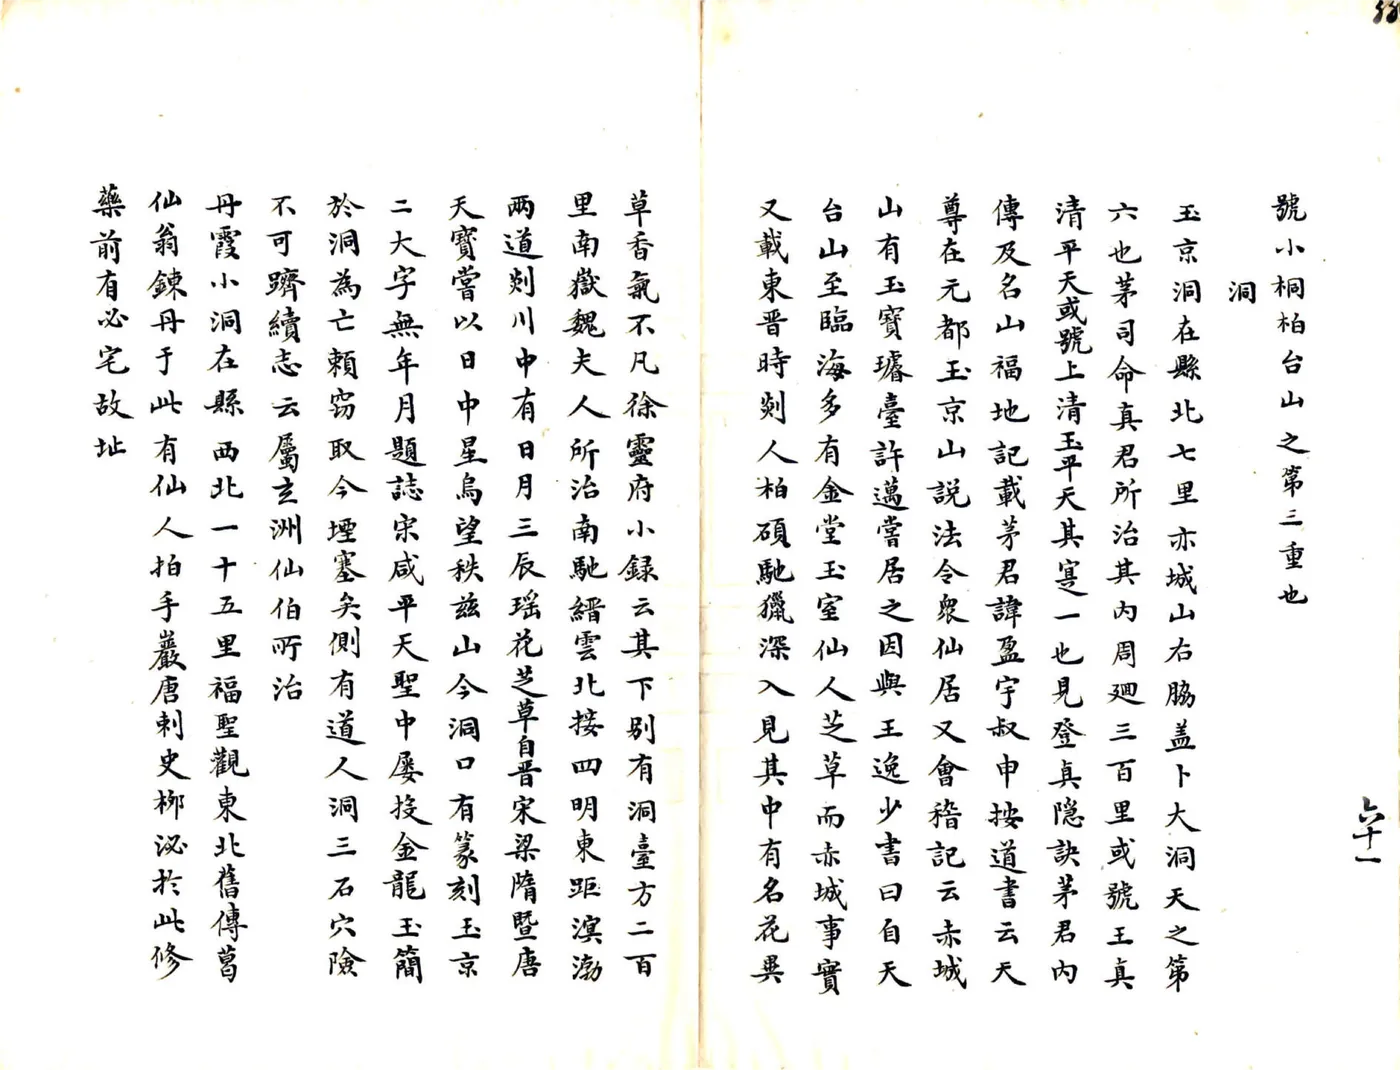 號小桐柏台山之第三重也
洞
玉京洞在縣北七里亦城山右脇盖卜大洞天之第
六也茅司命真君所治其內周廻三百里或號王真
清平天或號上清玉平天其寔一也見登真隐訣茅君內
傳及名山福地記載茅君諱盈字叔申按道書云天
尊在元都玉京山説法令衆仙居又會稽記云赤城
山有玉寳璿臺許邁嘗居之因與王逸少書曰自天
台山至臨海多有金堂玉室仙人芝草而赤城事實
又載東晋時剡人柏碩馳獵深入見其中有名花異
草香氣不凡徐靈府小録云其下别有洞臺方二百
里南嶽魏夫人所治南馳縉雲北接四明東距溟渤
两道剡川中有日月三辰瑶花芝草自晋宋梁隋暨唐
天寳嘗以日中星烏望秩兹山今洞口有篆刻玉京
二大字無年月題誌宋咸平天聖中屡投金龍玉簡
於洞為亡賴窃取今堙塞矣側有道人洞三石穴險
不可躋續志云屬玄洲仙伯所治
丹霞小洞在縣西北一十五里福聖觀東北舊傳葛
仙翁鍊丹于此有仙人拍手巖唐刺史栁泌於此修
藥前有必宅故址
六十一